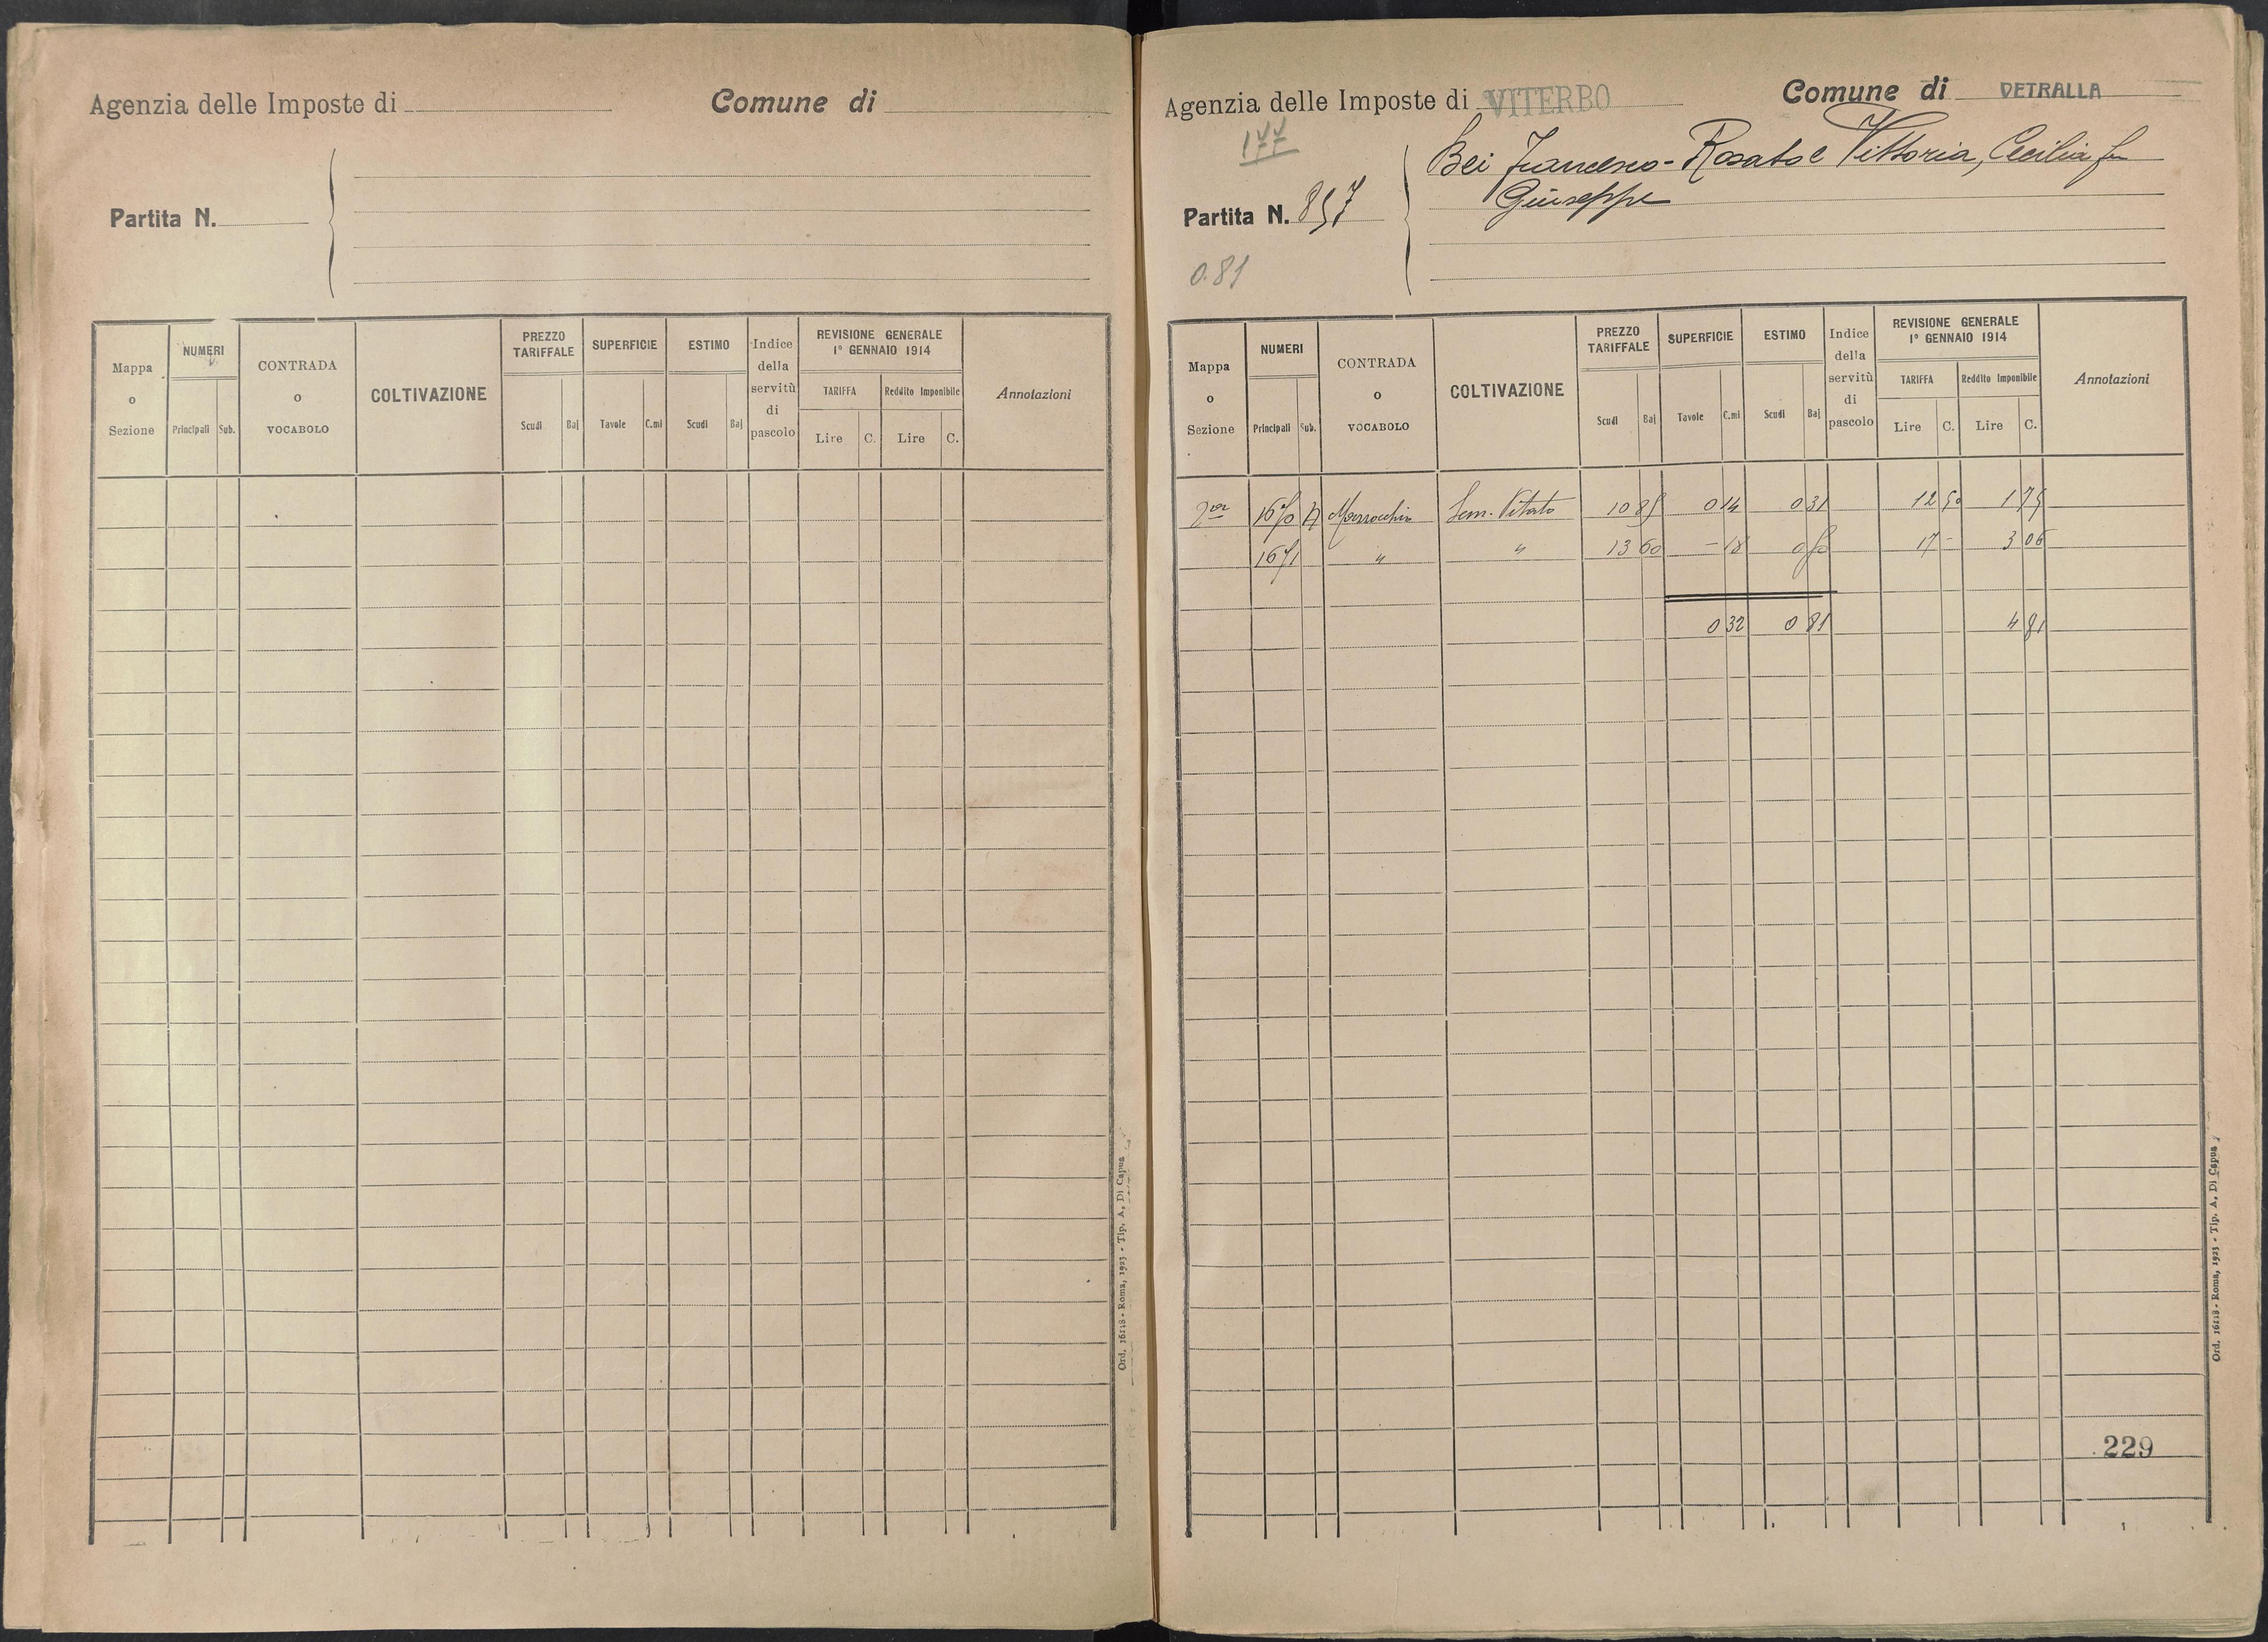 Agenzia delle Imposte di
Comune di
Partita N.
Mappa o Sezione
NUMERI
Principali Sub.
CONTRADA o VOCABOLO
COLTIVAZIONE
PREZZO TARIFFALE
Scudi Baj
SUPERFICIE
Tavole C.mi
ESTIMO
Scudi Baj
Indice della servitù di pascolo
REVISIONE GENERALE
1° GENNAIO 1914
TARIFFA Reddito Imponibile
Lire C. Lire C.
Annotazioni
Ord. 16118 - Roma, 1923 - Tip. A. Di Capua
Agenzia delle Imposte di VITERBO
Comune di VETRALLA
177
Bei Francesco - Rosato e Vittoria, Cecilia fu
Giuseppe
Partita N. 857
0.81
Mappa o Sezione
NUMERI
Principali Sub.
CONTRADA o VOCABOLO
COLTIVAZIONE
PREZZO TARIFFALE
Scudi Baj
SUPERFICIE
Tavole C.mi
ESTIMO
Scudi Baj
Indice della servitù di pascolo
REVISIONE GENERALE
1° GENNAIO 1914
TARIFFA Reddito Imponibile
Lire C. Lire C.
Annotazioni
1650 Sem. Vitato 10 85 0 14 0 31 12 50 1 75
1651 " " 13 60 - 18 0 50 17 - 3 06
0 32 0 81 4 81
229
Ord. 16118 - Roma, 1923 - Tip. A. Di Capua